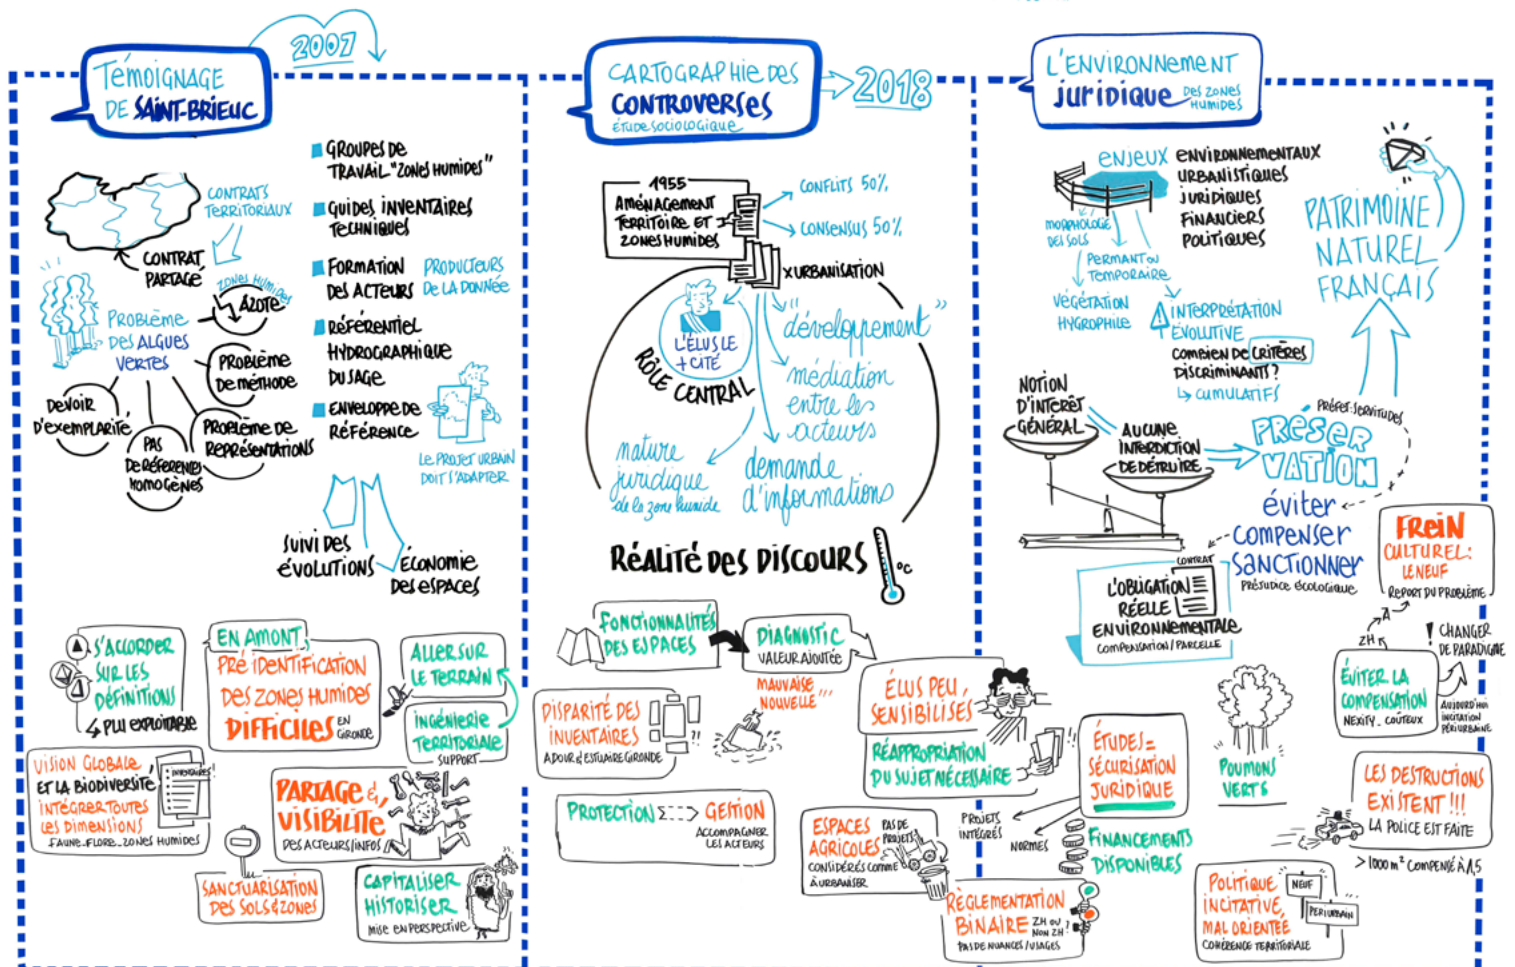 2007
TÉMOIGNAGE
DE SAINT-BRIEUC
CONTRATS
TERRITORIAUX
CONTRAT
PARTAGÉ
ZONES HUMIDES
AZOTE
PROBLÈME
DES ALGUES
VERTES
PROBLÈME
DE MÉTHODE
DEVOIR
D'EXEMPLARITÉ
PAS
DE RÉFÉRENCES
HOMOGÈNES
PROBLÈME DE
REPRÉSENTATIONS
GROUPES DE
TRAVAIL "ZONES HUMIDES"
GUIDES, INVENTAIRES
TECHNIQUES
FORMATION
DES ACTEURS
PRODUCTEURS
DE LA DONNÉE
RÉFÉRENTIEL
HYDROGRAPHIQUE
DU SAGE
ENVELOPPE DE
RÉFÉRENCE
LE PROJET URBAIN
DOIT S'ADAPTER
SUIVI DES
ÉVOLUTIONS
ÉCONOMIE
DES ESPACES
S'ACCORDER
SUR LES
DÉFINITIONS
PLU EXPLOITABLE
EN AMONT,
PRÉ IDENTIFICATION
DES ZONES HUMIDES
DIFFICILES EN
GIRONDE
ALLER SUR
LE TERRAIN
INGÉNIERIE
TERRITORIALE
SUPPORT
VISION GLOBALE
ET LA BIODIVERSITÉ
INTÉGRER TOUTES
LES DIMENSIONS
FAUNE_FLORE_ZONES HUMIDES
INVENTAIRES
PARTAGE &
VISIBILITÉ
DES ACTEURS/INFOS
SANCTUARISATION
DES SOLS & ZONES
CAPITALISER
HISTORISER
MISE EN PERSPECTIVE
CARTOGRAPHIE DES
CONTROVERSES
ÉTUDE SOCIOLOGIQUE
2018
1955
AMÉNAGEMENT
TERRITOIRE ET
ZONES HUMIDES
CONFLITS 50%
CONSENSUS 50%
X URBANISATION
L'ÉLUS LE
+ CITÉ
RÔLE CENTRAL
"développement"
médiation
entre les
acteurs
nature
juridique
de la zone humide
demande
d'informations
RÉALITÉ DES DISCOURS
°C
FONCTIONNALITÉS
DES ESPACES
DIAGNOSTIC
VALEUR AJOUTÉE
MAUVAISE
NOUVELLE'''
DISPARITÉ DES
INVENTAIRES
ADOUR & ESTUAIRE GIRONDE
?!
ÉLUS PEU
SENSIBILISÉS
RÉAPPROPRIATION
DU SUJET NÉCESSAIRE
!!
PROTECTION
GESTION
ACCOMPAGNER
LES ACTEURS
ESPACES
AGRICOLES
PAS DE
PROJETS
CONSIDÉRÉS COMME
À URBANISER
L'ENVIRONNEMENT
JURIDIQUE DES ZONES
HUMIDES
ENJEUX
ENVIRONNEMENTAUX
URBANISTIQUES
JURIDIQUES
FINANCIERS
POLITIQUES
MORPHOLOGIE
DES SOLS
PERMANT OU
TEMPORAIRE
VÉGÉTATION
HYGROPHILE
INTERPRÉTATION
ÉVOLUTIVE
COMBIEN DE CRITÈRES
DISCRIMINANTS?
CUMULATIFS
PATRIMOINE
NATUREL
FRANÇAIS
NOTION
D'INTÉRÊT
GÉNÉRAL
AUCUNE
INTERDICTION
DE DÉTRUIRE
PRÉFET: SERVITUDES
PRÉSER
VATION
éviter
compenser
SANCTIONNER
PRÉJUDICE ÉCOLOGIQUE
CONTRAT
L'OBLIGATION
RÉELLE
ENVIRONNEMENTALE
COMPENSATION/PARCELLE
FREIN
CULTUREL:
LE NEUF
REPORT DU PROBLÈME
ZH
A
ÉVITER LA
COMPENSATION
NEXITY_COÛTEUX
! CHANGER
DE PARADIGME
AUJOURD'HUI
INCITATION
PÉRIURBAINE
ÉTUDES =
SÉCURISATION
JURIDIQUE
PROJETS
INTÉGRÉS
NORMES
FINANCEMENTS
DISPONIBLES
POUMONS
VERTS
LES DESTRUCTIONS
EXISTENT!!!
LA POLICE EST FAITE
>1000 m² COMPENSÉ À 1,5
RÈGLEMENTATION
BINAIRE ZH OU
NON ZH?
PAS DE NUANCES/USAGES
POLITIQUE
INCITATIVE,
MAL ORIENTÉE
COHÉRENCE TERRITORIALE
NEUF
PERIURBAIN